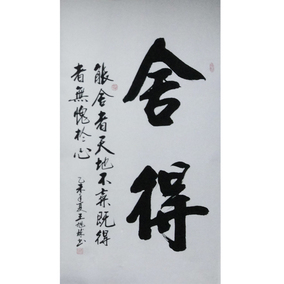 舍得
能舍者天地不弃既得
者無愧於心
乙未年夏王悦林书